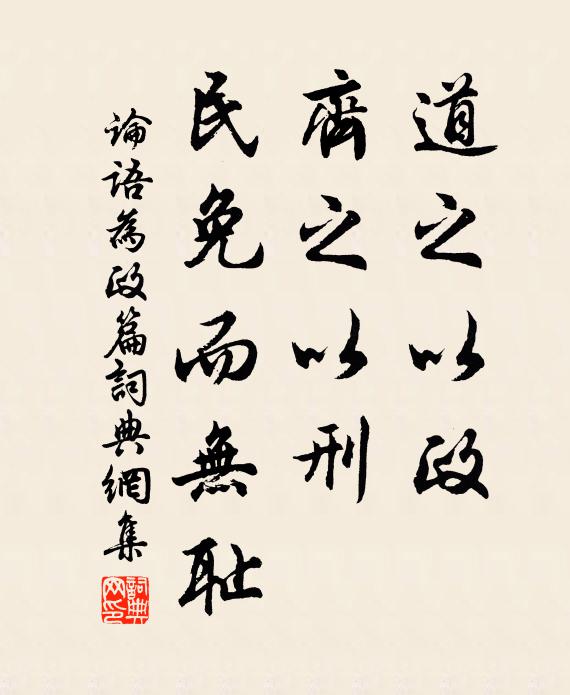 道之以政
齊之以刑
民免而無耻
論語為政篇詞典網集
詞典
网印